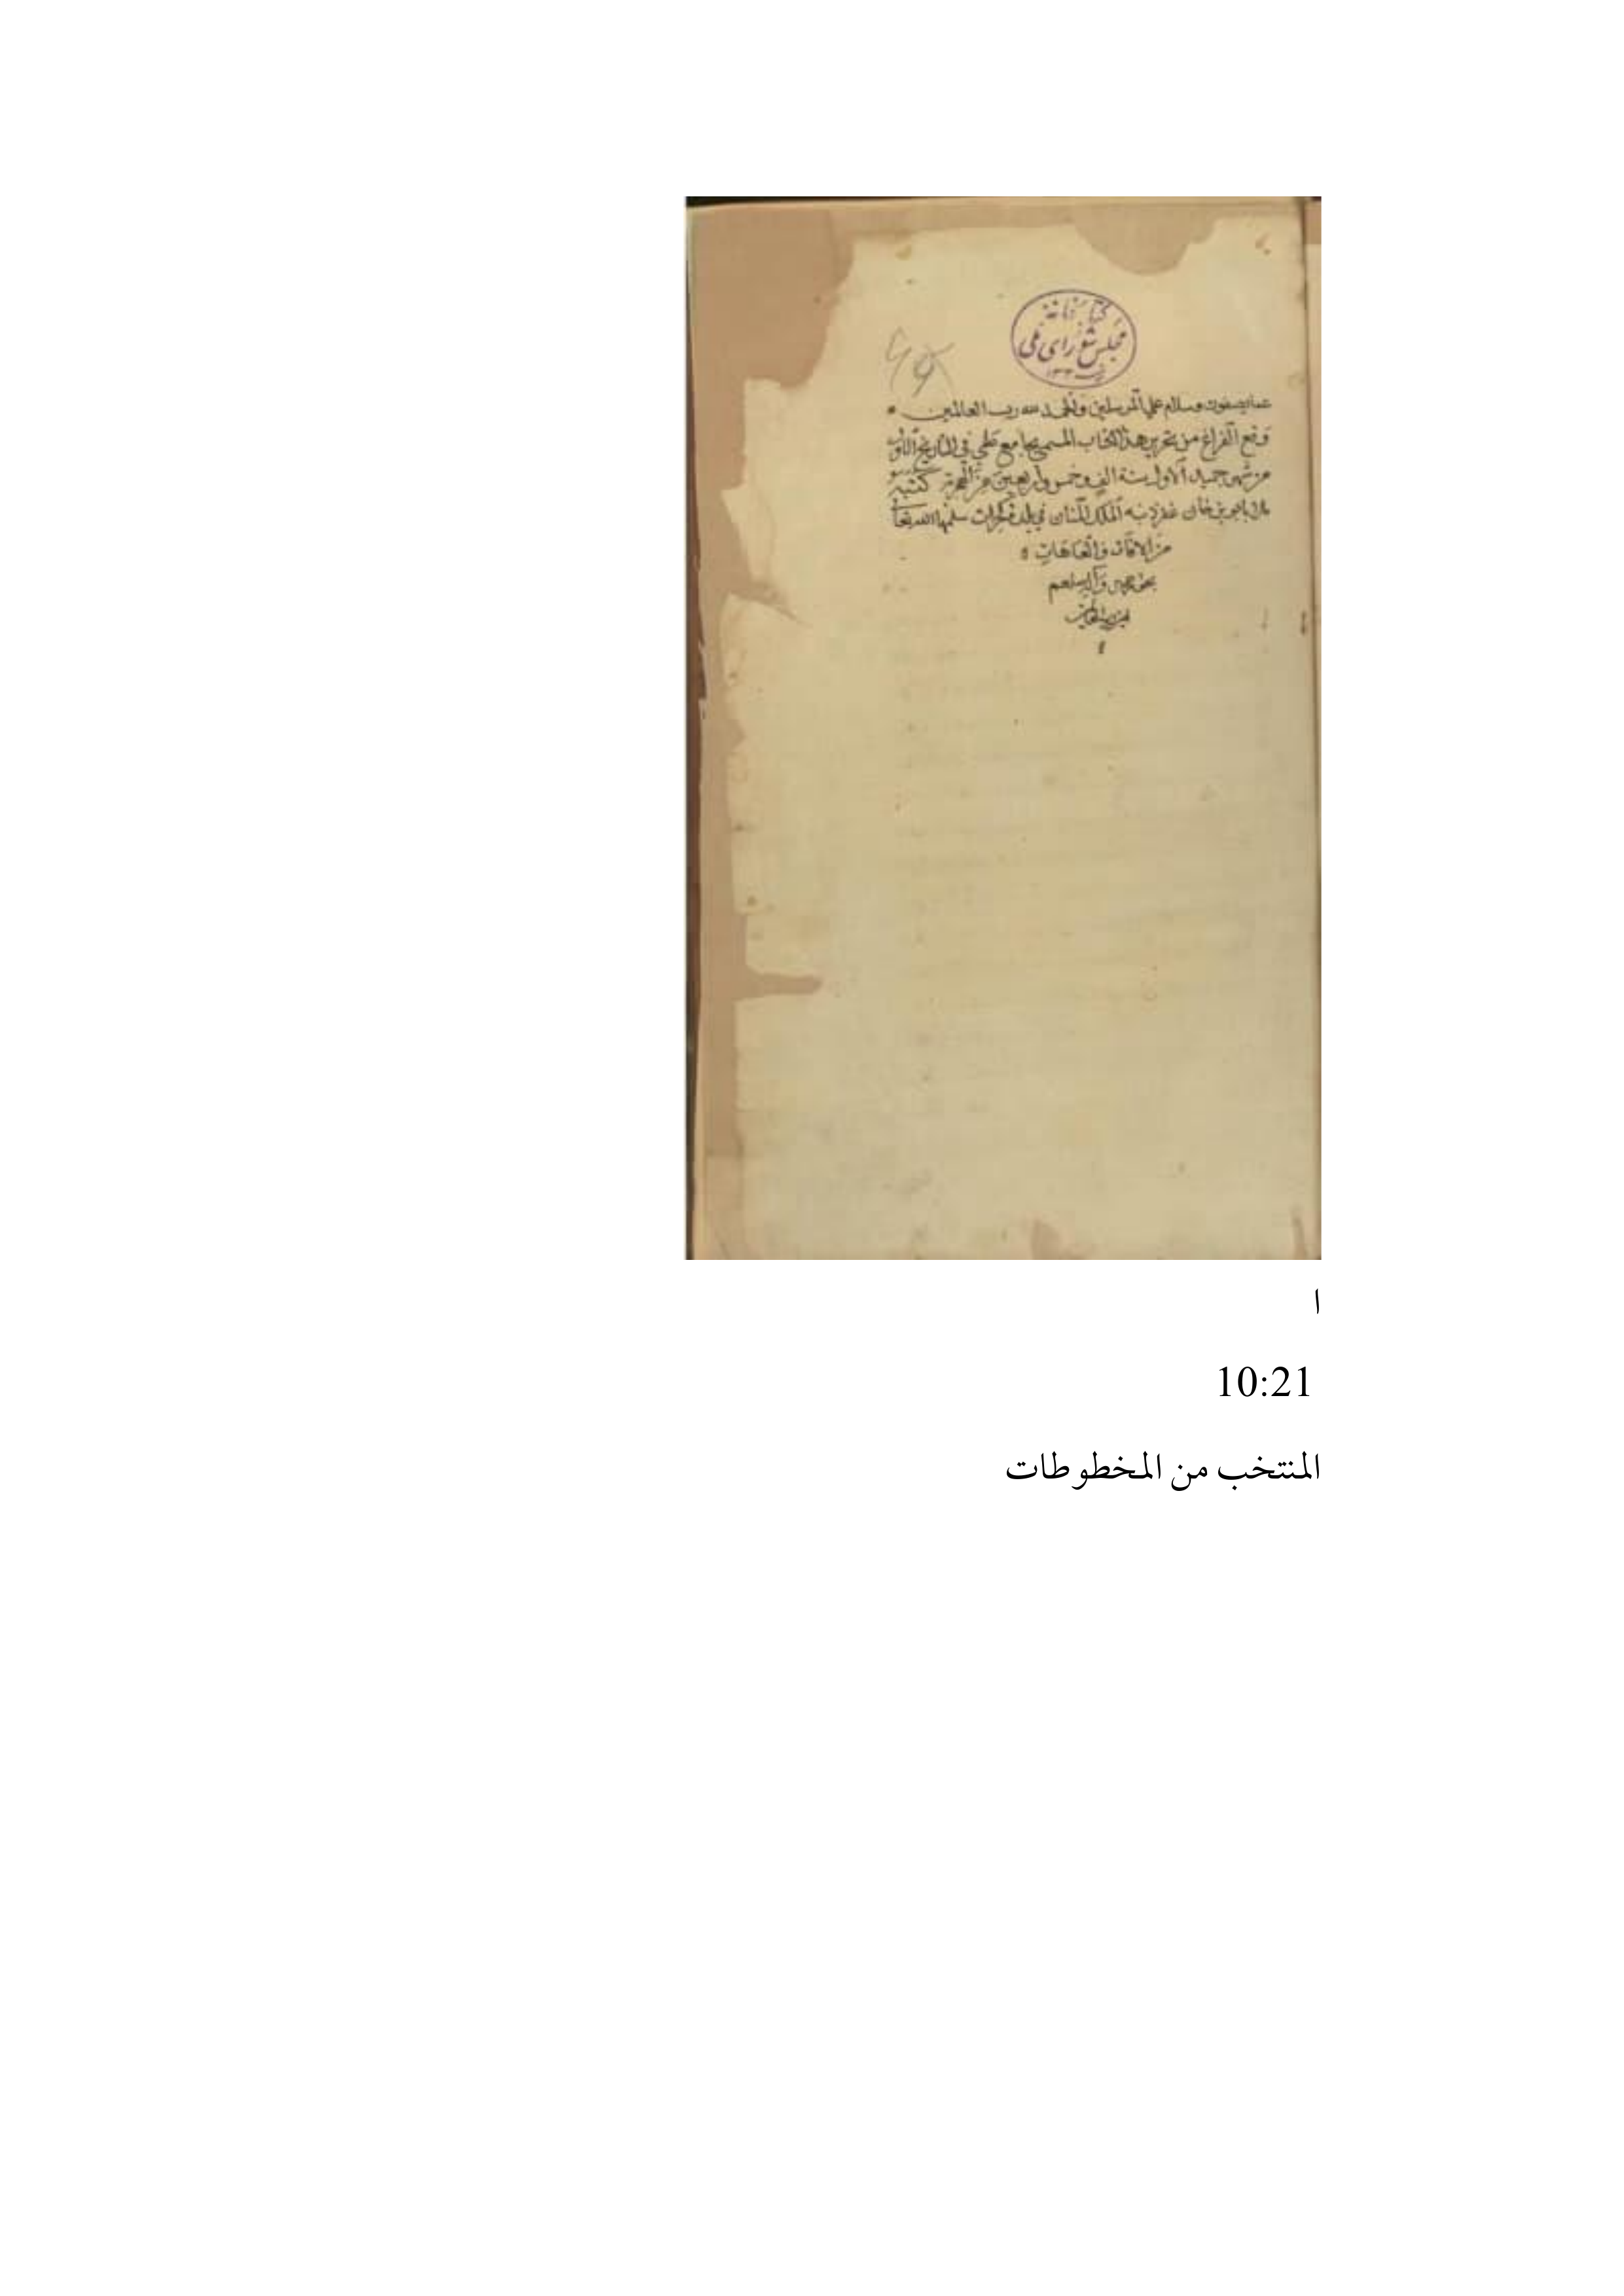 كتابخانه
مجلس شورای ملی
عما يصفون وسلام على المرسلين والحمد لله رب العالمين
وقع الفراغ من تحرير هذا الكتاب المسمى بجامع في التاريخ الاول
من شهر جميد الاول سنة الف وخمس واربعين من الهجرة كتبه
بن خان غفر ذنبه الملك المنان في بلدة كجرات سلمها الله تعالى
من الافات والعاهات
بحق محمد وآله صلعم
ا
10:21
المنتخب من المخطوطات